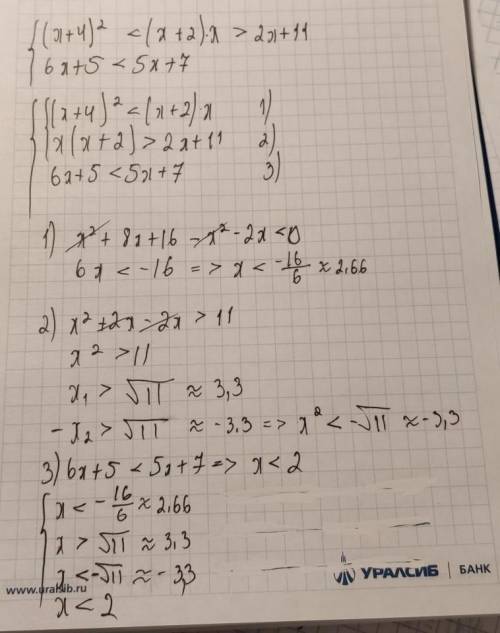 { (x+4)² < (x+2)·x > 2x+11
6x+5 < 5x+7
{ { (x+4)² < (x+2)·x 1)
x(x+2) > 2x+11 2)
6x+5 < 5x+7 3)
1) x² + 8x+16 - x² - 2x < 0
6x < -16 => x < -16/6 ≈ 2.66
2) x² + 2x - 2x > 11
x² > 11
x₁ > √11 ≈ 3,3
-x₂ > √11 ≈ -3.3 => x² < -√11 ≈ -3,3
3) 6x+5 < 5x+7 => x < 2
{ x < -16/6 ≈ 2.66
x > √11 ≈ 3.3
x < -√11 ≈ -3,3
x < 2
www.uralsib.ru
УРАЛСИБ | БАНК